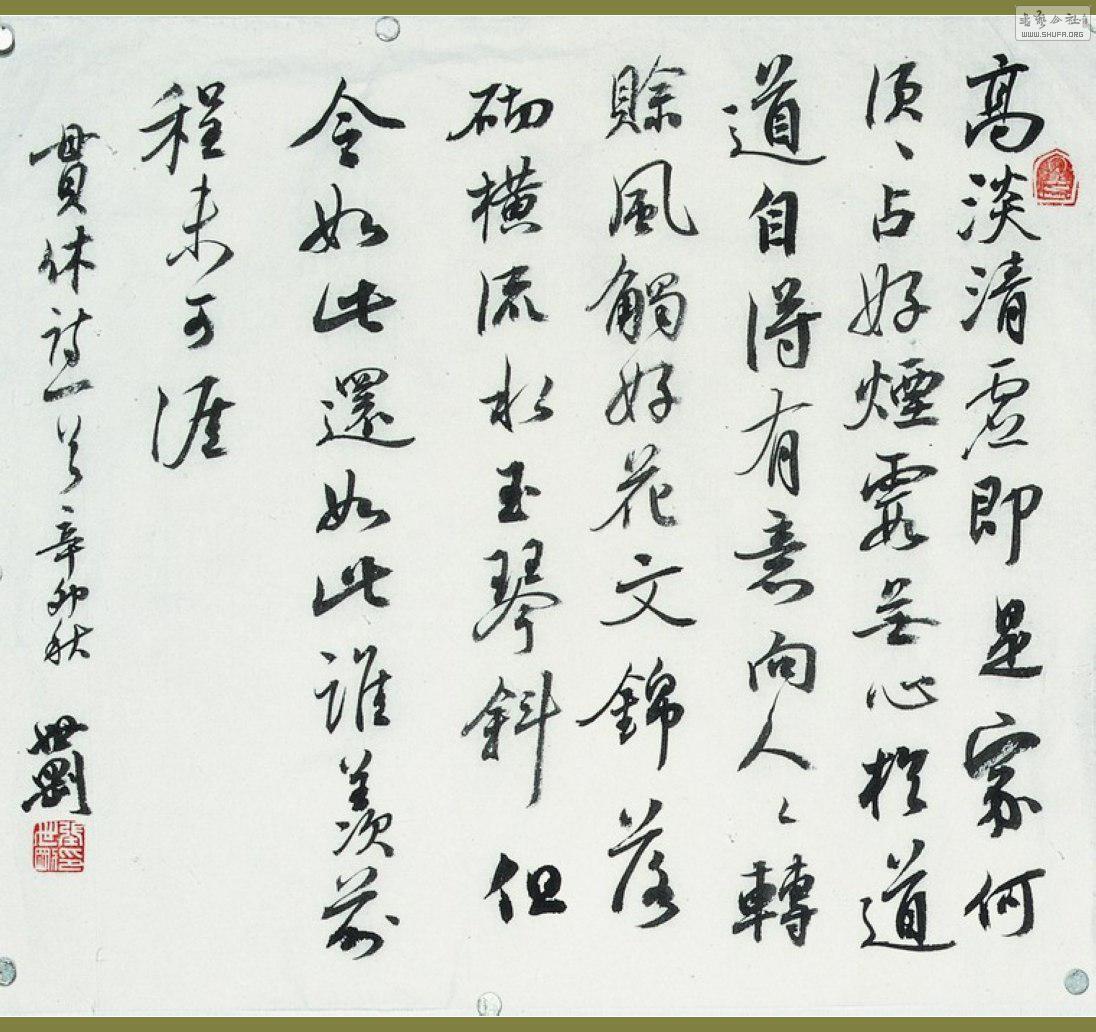 高淡清虛即是家何
須〻占好煙霞無心於道
道自得有意向人〻轉
賒風觸好花文錦落
砌橫流水玉琴斜但
令如此還如此誰羨前
程未可涯
貫休詩一首辛卯秋 世剛
WWW.SHUFA.ORG